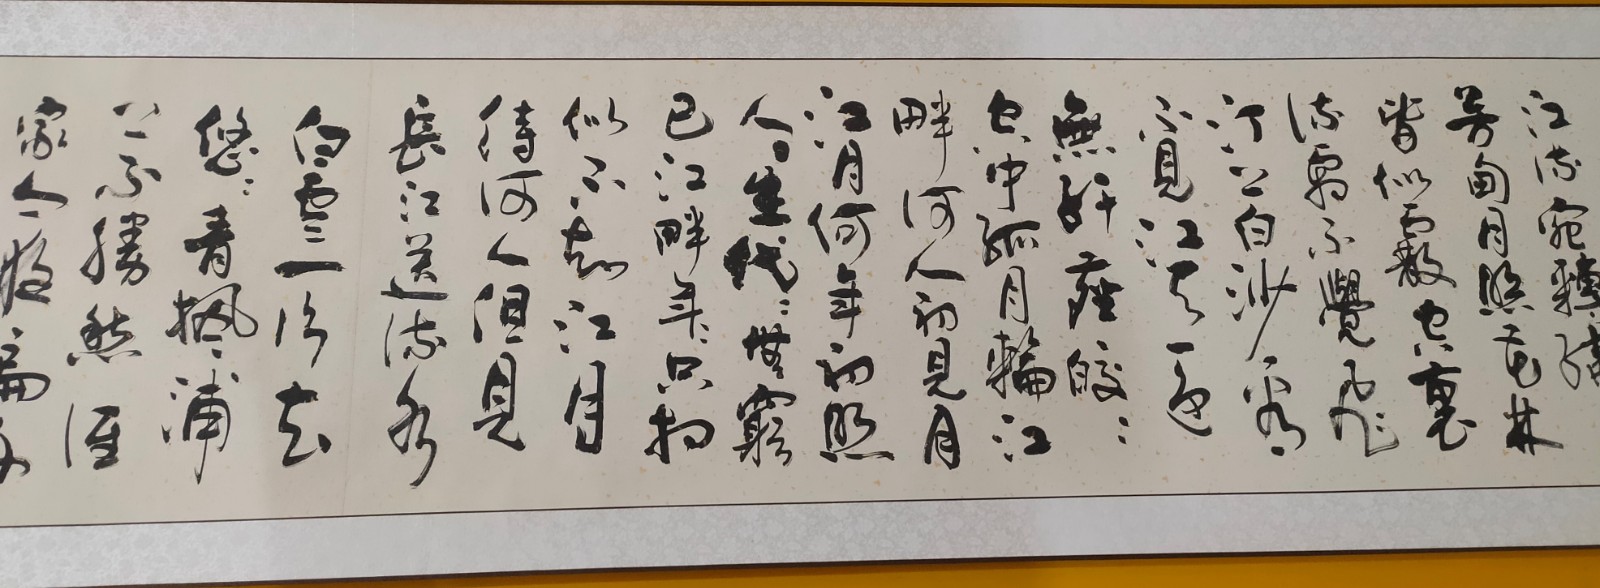 江流宛轉繞
芳甸月照花林
皆似霰空裏
流霜不覺飛
汀上白沙看
不見江天一色
無纤塵皎〻
空中孤月輪江
畔何人初見月
江月何年初照
人生代〻無窮
已江畔年〻只相
似不知江月
待何人但見
長江送流水
白雲一片去
悠〻青楓浦
上不勝愁誰
家今夜扁舟